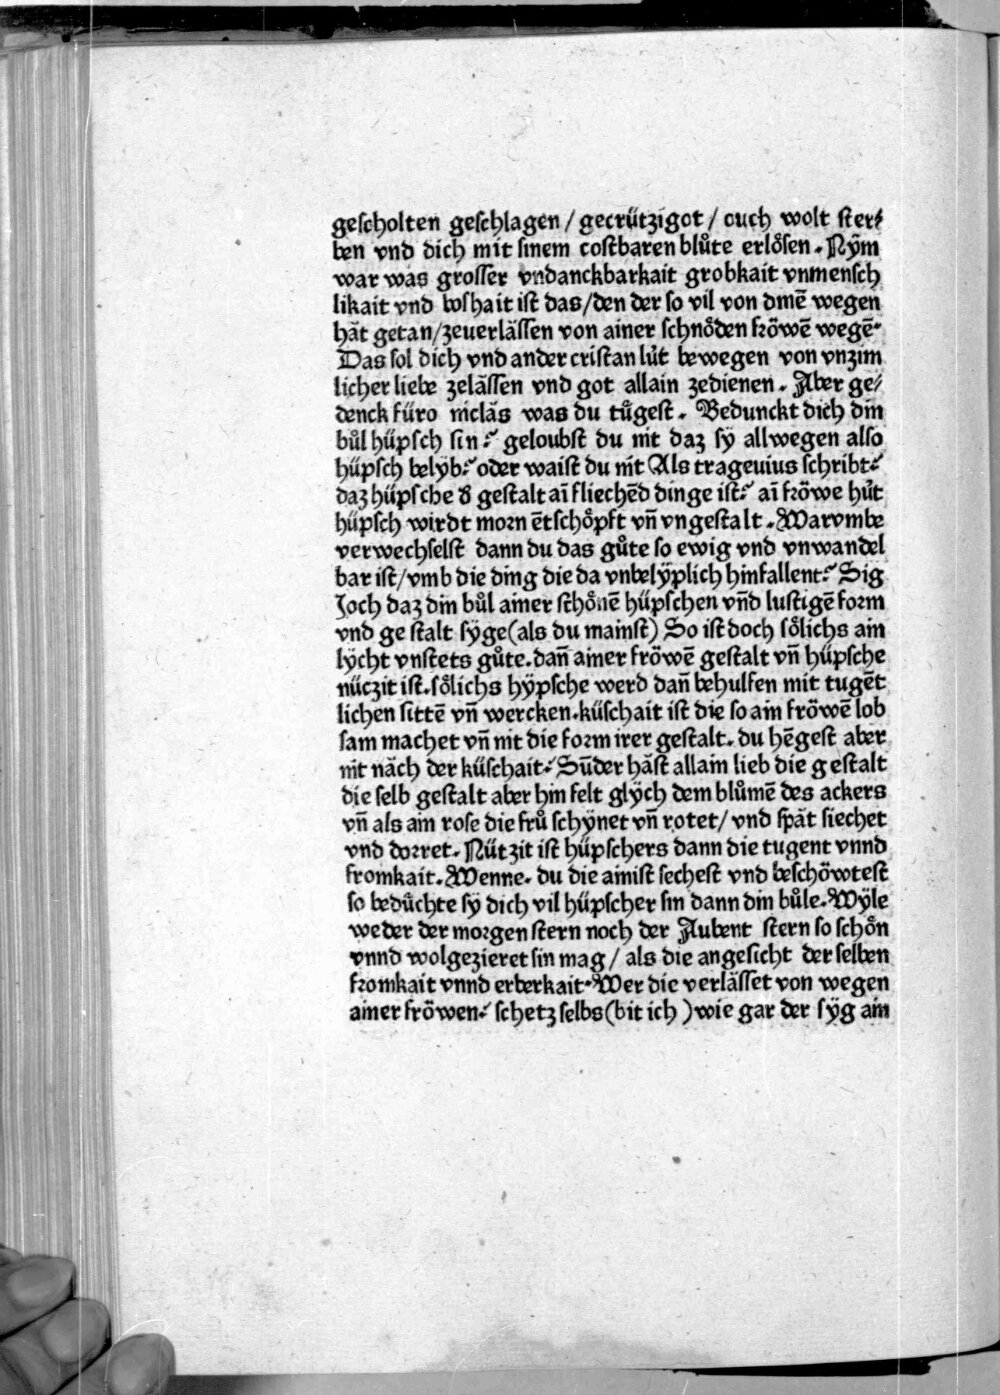 gescholten geschlagen / gecrützigot / ouch wolt ster⸗
ben vnd dich mit sinem costbaren blůte erlősen. Nÿm
war was grosser vndanckbarkait grobkait vnmensch
likait vnd boshait ist das/den der so vil von dinē wegen
hăt getan/zeuerlăssen von ainer schnőden frőwē wegē.
Das sol dich vnd ander cristan lüt bewegen von vnzim
licher liebe zelăssen vnd got allain zedienen. Aber ge⸗
denck füro niclăs was du tůgest. Bedunckt dich din
bůl hüpsch sin? geloubst du nit daz sÿ allwegen also
hüpsch belÿb? oder waist du nit Als tragevius schribt?
daz hüpsche d̕ gestalt ai͞ fliechēd dinge ist? ai͞ frőwe hüt
hüpsch wirdt morn ētschőpft vn̄ vngestalt. Warvmbe
verwechselst dann du das gůte so ewig vnd vnwandel
bar ist/vmb die ding die da vnbelÿplich hinfallent? Sig
Joch daz din bůl ainer schőnē hüpschen vn̄d lustigē form
vnd gestalt sÿge(als du mainst) So ist doch sőlichs ain
lÿcht vnstets gůte. dan̄ ainer frőwē gestalt vn̄ hüpsche
nüczit ist. sőlichs hÿpsche werd dan̄ behulfen mit tugēt
lichen sittē vn̄ wercken. küschait ist die so ain frőwē lob
sam machet vn̄ nit die form irer gestalt. du hēgest aber
nit năch der küschait? Sūder hăst allain lieb die gestalt
die selb gestalt aber hin felt glÿch dem blůmē des ackers
vn̄ als ain rose die frů schÿnet vn̄ rotet/ vnd spăt siechet
vnd dorret. Nützit ist hüpschers dann die tugent vnnd
fromkait. Wenne. du die ainist sechest vnd beschőwtest
so bedüchte sÿ dich vil hüpscher sin dann din bůle. Wÿle
weder der morgenstern noch der Aubent stern so schőn
vnnd wolgezieret sin mag / als die angesicht der selben
fromkait vnnd erberkait. Wer die verlăsset von wegen
ainer frőwen? schetz selbs(bit ich )wie gar der sÿg ain